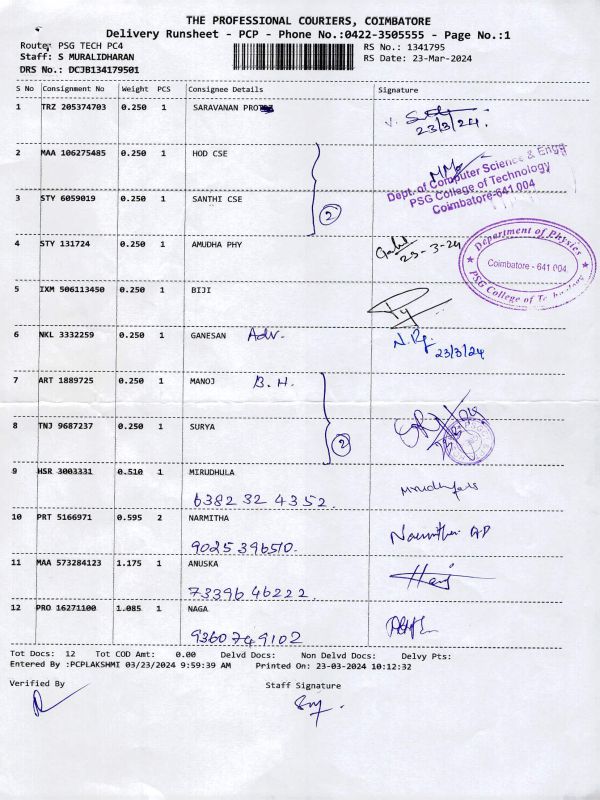 THE PROFESSIONAL COURIERS, COIMBATORE
Delivery Runsheet - PCP - Phone No.:0422-3505555 - Page No.:1
Route: PSG TECH PC4
RS No.: 1341795
Staff: S MURALIDHARAN
RS Date: 23-Mar-2024
DRS No.: DCJB134179501
S No Consignment No Weight PCS Consignee Details Signature
1 TRZ 205374703 0.250 1 SARAVANAN
23/3/24.
2 MAA 106275485 0.250 1 HOD CSE
Dept. of Computer Science & Engg
PSG College of Technology
Coimbatore-641 004
3 STY 6059019 0.250 1 SANTHI CSE
2
4 STY 131724 0.250 1 AMUDHA PHY
23-3-24
Department of Physics
Coimbatore - 641 004.
PSG College of
5 IXM 506113450 0.250 1 BIJI
6 NKL 3332259 0.250 1 GANESAN Adv.
23/3/24
7 ART 1889725 0.250 1 MANOJ B.H.
8 TNJ 9687237 0.250 1 SURYA
2
9 HSR 3003331 0.510 1 MIRUDHULA
6382 32 4352.
10 PRT 5166971 0.595 2 NARMITHA
9025396510.
11 MAA 573284123 1.175 1 ANUSKA
73396 46222.
12 PRO 16271100 1.085 1 NAGA
9360749102
Tot Docs: 12 Tot COD Amt: 0.00 Delvd Docs: Non Delvd Docs: Delvy Pts:
Entered By :PCPLAKSHMI 03/23/2024 9:59:39 AM Printed On: 23-03-2024 10:12:32
Verified By Staff Signature